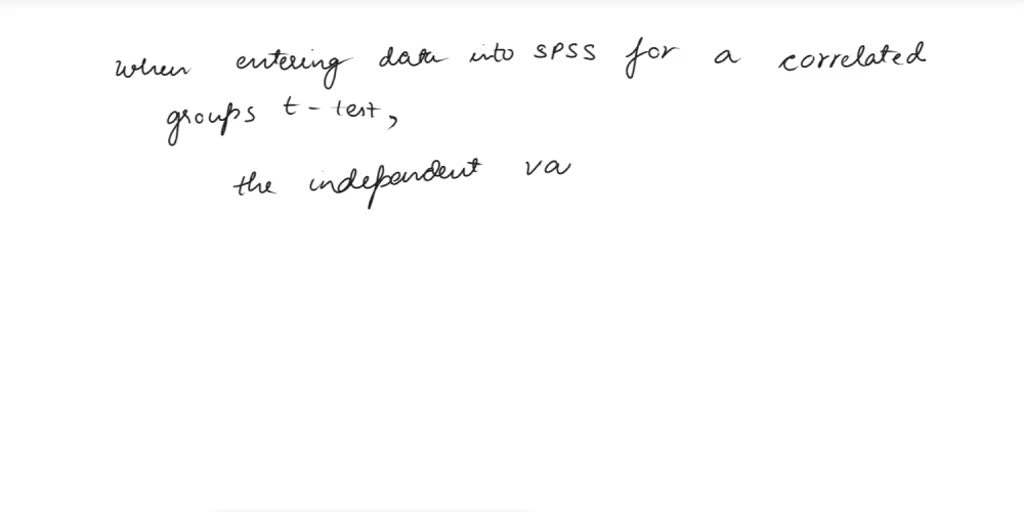 when entering data into SPSS for a correlated
groups t-test,
the independent va